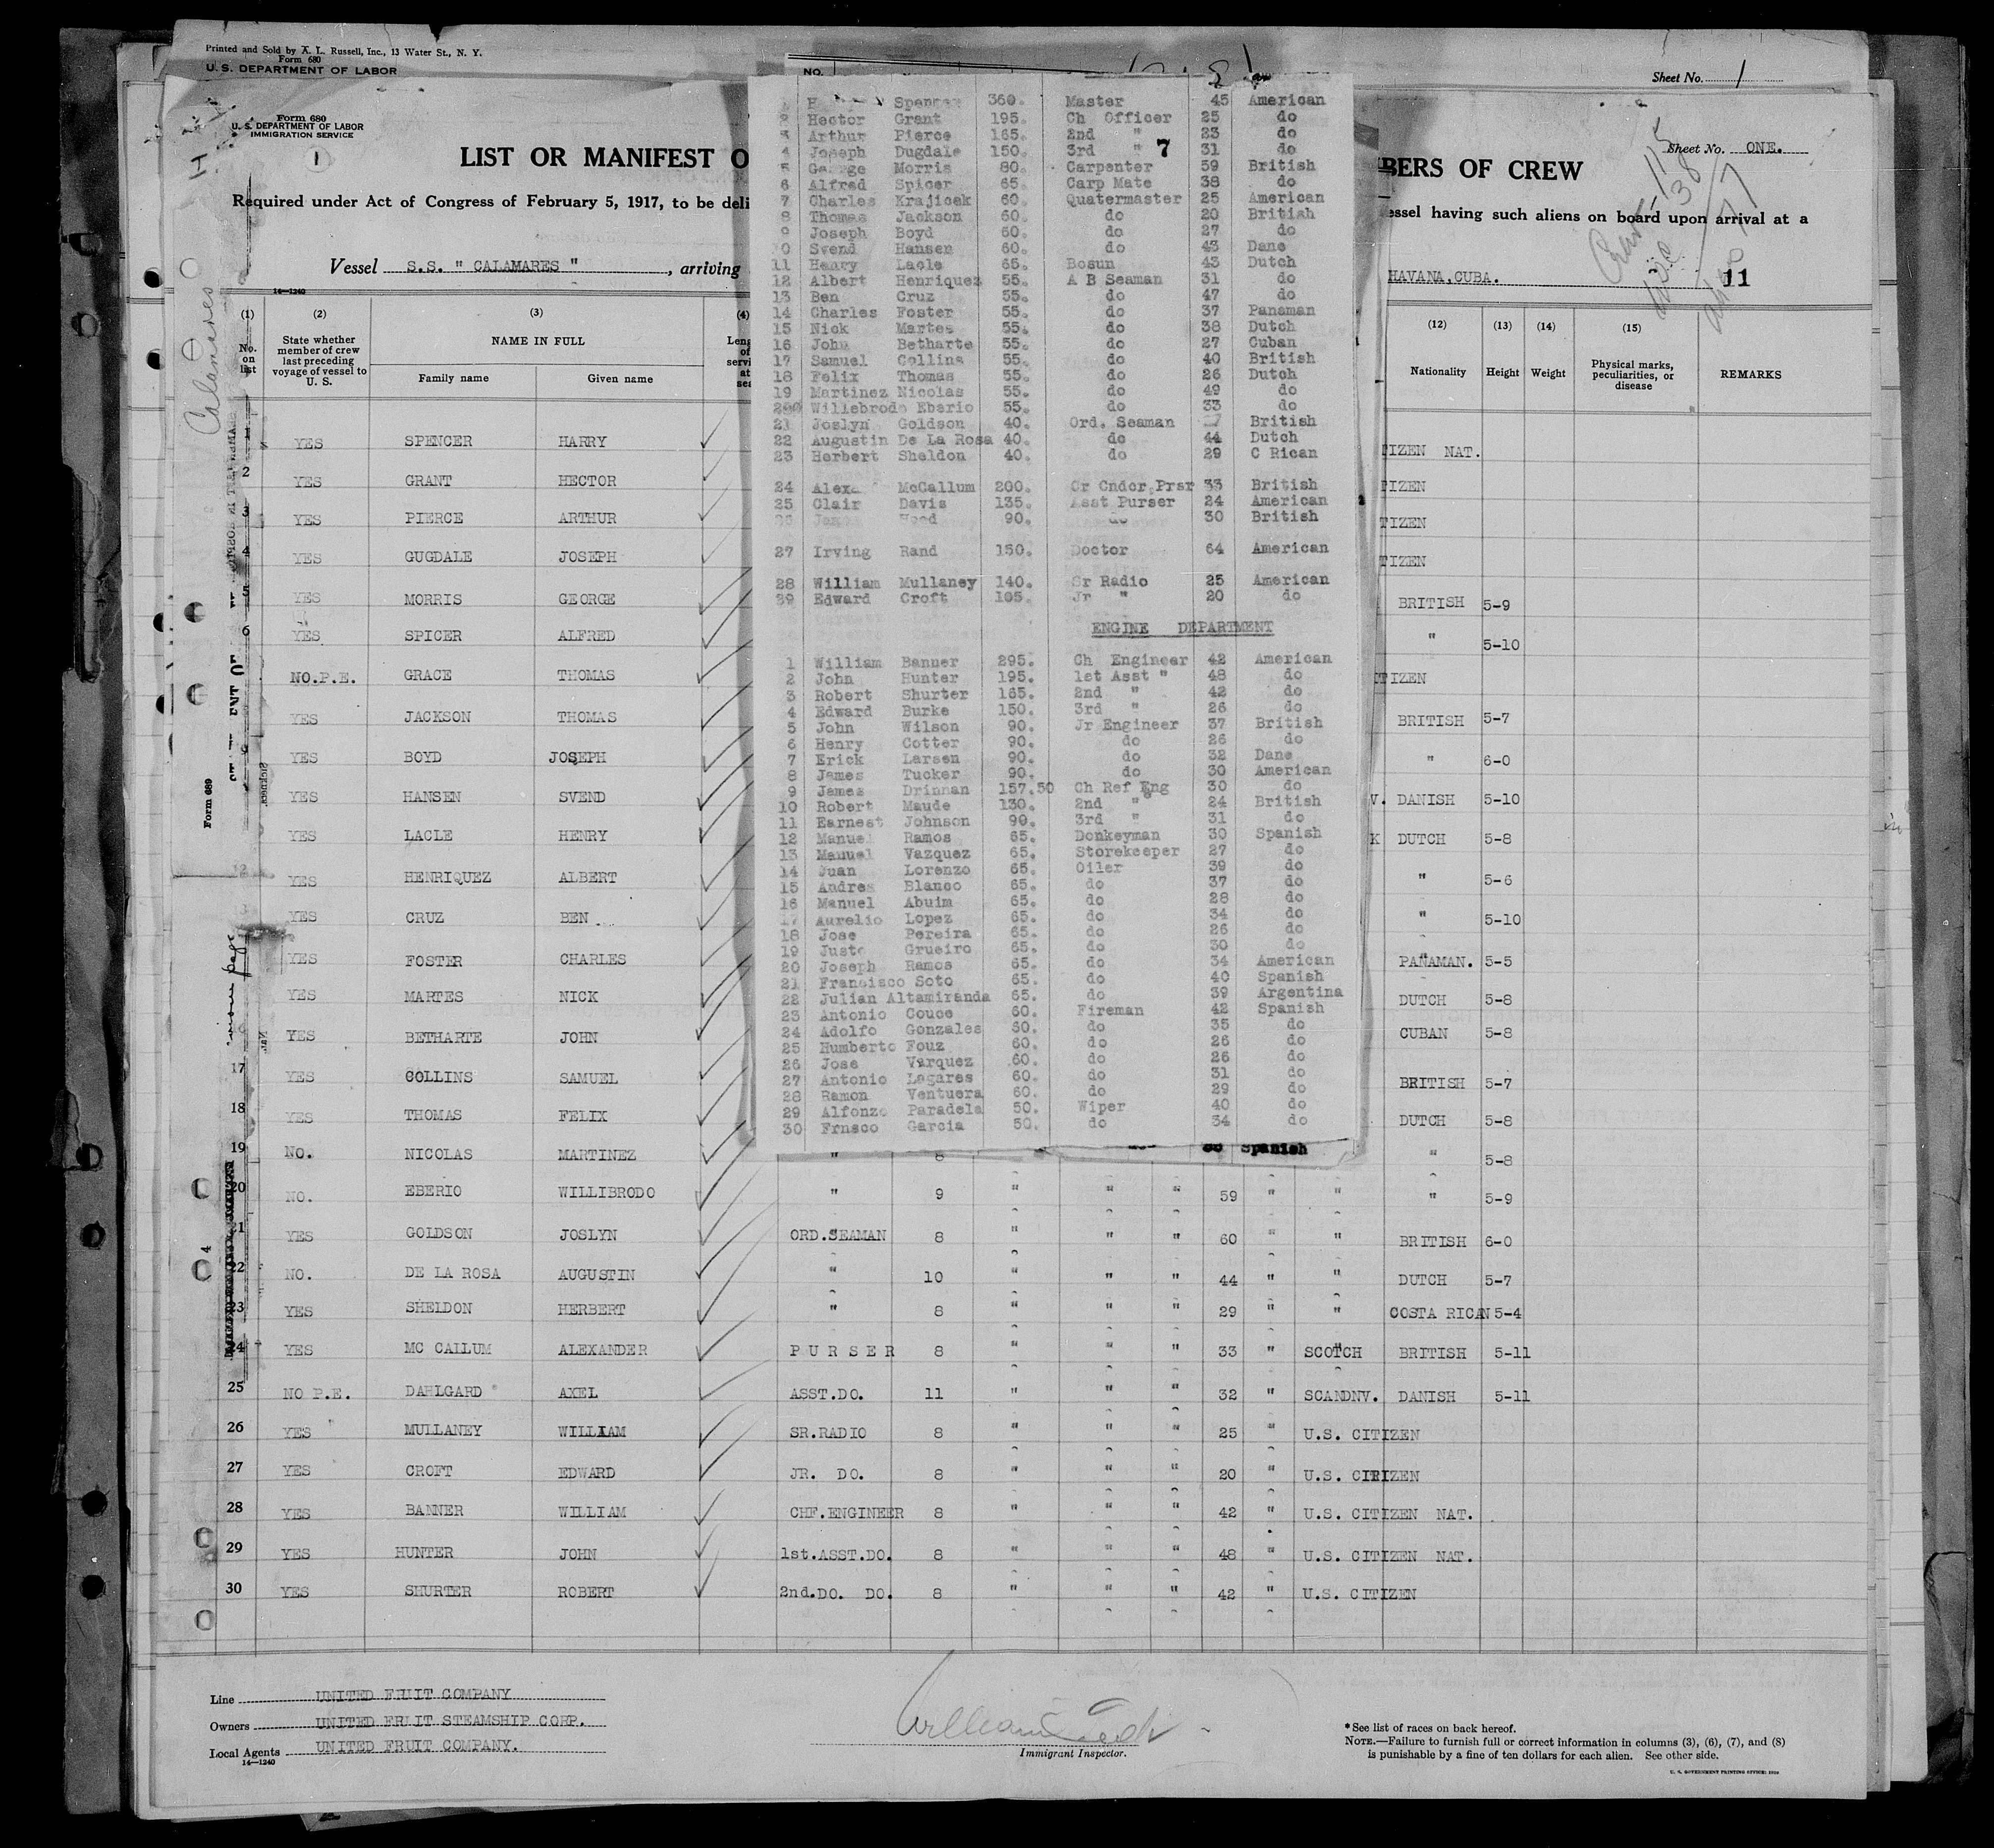 Printed and Sold by A. L. Russell, Inc., 13 Water St., N. Y.
Form 680
U. S. DEPARTMENT OF LABOR
NO.
Sheet No. 1
Form 680
U. S. DEPARTMENT OF LABOR
IMMIGRATION SERVICE
1
LIST OR MANIFEST O
BERS OF CREW
Sheet No. ONE.
Required under Act of Congress of February 5, 1917, to be deli
essel having such aliens on board upon arrival at a
Vessel S.S. " CALAMARES " , arriving
HAVANA,CUBA.
11
Calamares
14-1240
(1) (2) (3) (4)
No. on list
State whether member of crew last preceding voyage of vessel to U. S.
NAME IN FULL
Family name Given name
(12) (13) (14) (15)
Nationality Height Weight Physical marks, peculiarities, or disease REMARKS
Spencer 360. Master 45 American
2 Hector Grant 195. Ch Officer 25 do
3 Arthur Pierce 165. 2nd " 23 do
4 Joseph Dugdale 150. 3rd " 7 31 do
5 George Morris 80. Carpenter 59 British
6 Alfred Spicer 65. Carp Mate 38 do
7 Charles Krajicak 60. Quatermaster 25 American
8 Thomas Jackson 60. do 20 British
9 Joseph Boyd 60. do 27 do
0 Svend Hansen 60. do 43 Dane
11 Henry Lacle 65. Bosun 43 Dutch
12 Albert Henriquez 55. A B Seaman 31 do
13 Ben Cruz 55. do 47 do
14 Charles Foster 55. do 37 Panaman
15 Nick Martes 55. do 38 Dutch
16 John Betharte 55. do 27 Cuban
17 Samuel Collins 55. do 40 British
18 Felix Thomas 55. do 26 Dutch
19 Martinez Nicolas 55. do 49 do
20 Willebrodo Eberio 55. do 33 do
21 Joslyn Goldson 40. Ord. Seaman British
22 Augustin De La Rosa 40. do 44 Dutch
23 Herbert Sheldon 40. do 29 C Rican
24 Alexa McCallum 200. Cr Cndcr Prsr 33 British
25 Clair Davis 135. Asst Purser 24 American
90. do 30 British
27 Irving Rand 150. Doctor 64 American
28 William Mullaney 140. Sr Radio 25 American
39 Edward Croft 105. Jr " 20 do
ENGINE DEPARTMENT
1 William Banner 295. Ch Engineer 42 American
2 John Hunter 195. 1st Asst " 48 do
3 Robert Shurter 165. 2nd " 42 do
4 Edward Burke 150. 3rd " 26 do
5 John Wilson 90. Jr Engineer 37 British
6 Henry Cotter 90. do 26 do
7 Erick Larsen 90. do 32 Dane
8 James Tucker 90. do 30 American
9 James Drinnan 157.50 Ch Ref Eng 30 do
10 Robert Maude 130. 2nd " 24 British
11 Earnest Johnson 90. 3rd " 31 do
12 Manuel Ramos 65. Donkeyman 30 Spanish
13 Manuel Vazquez 65. Storekeeper 27 do
14 Juan Lorenzo 65. Oiler 39 do
15 Andres Blanco 65. do 37 do
16 Manuel Abuim 65. do 28 do
17 Aurelio Lopez 65. do 34 do
18 Jose Pereira 65. do 26 do
19 Justo Grueiro 65. do 30 do
20 Joseph Ramos 65. do 34 American
21 Francisco Soto 65. do 40 Spanish
22 Julian Altamiranda 65. do 39 Argentina
23 Antonio Couce 60. Fireman 42 Spanish
24 Adolfo Gonzales 60. do 35 do
25 Humberto Fouz 60. do 26 do
26 Jose Varquez 60. do 26 do
27 Antonio Lagares 60. do 31 do
28 Ramon Ventuera 60. do 29 do
29 Alfonzo Paradela 50. Wiper 40 do
30 Frnsco Garcia 50. do 34 do
Spanish
YES SPENCER HARRY TIZEN NAT.
2 YES GRANT HECTOR TIZEN
3 YES PIERCE ARTHUR TIZEN
4 YES GUGDALE JOSEPH TIZEN
5 YES MORRIS GEORGE BRITISH 5-9
6 YES SPICER ALFRED " 5-10
NO.P.E. GRACE THOMAS TIZEN
YES JACKSON THOMAS BRITISH 5-7
9 YES BOYD JOSEPH " 6-0
YES HANSEN SVEND V. DANISH 5-10
YES LACLE HENRY K DUTCH 5-8
12 YES HENRIQUEZ ALBERT " 5-6
YES CRUZ BEN. " 5-10
YES FOSTER CHARLES PANAMAN. 5-5
YES MARTES NICK DUTCH 5-8
YES BETHARTE JOHN CUBAN 5-8
17 YES COLLINS SAMUEL BRITISH 5-7
18 YES THOMAS FELIX DUTCH 5-8
19 NO. NICOLAS MARTINEZ " 8 " 5-8
20 NO. EBERIO WILLIBRODO " 9 " " " 59 " " " 5-9
1 YES GOLDSON JOSLYN ORD.SEAMAN 8 " " " 60 " " BRITISH 6-0
22 NO. DE LA ROSA AUGUSTIN " 10 " " " 44 " " DUTCH 5-7
23 YES SHELDON HERBERT " 8 " " " 29 " " COSTA RICAN 5-4
24 YES MC CALLUM ALEXANDER P U R S E R 8 " " " 33 " SCOTCH BRITISH 5-11
25 NO P.E. DAHLGARD AXEL ASST.DO. 11 " " " 32 " SCANDNV. DANISH 5-11
26 YES MULLANEY WILLIAM SR.RADIO 8 " " " 25 " U.S. CITIZEN
27 YES CROFT EDWARD JR. DO. 8 " " " 20 " U.S. CITIZEN
28 YES BANNER WILLIAM CHF.ENGINEER 8 " " " 42 " U.S. CITIZEN NAT.
29 YES HUNTER JOHN 1st.ASST.DO. 8 " " " 48 " U.S. CITIZEN NAT.
30 YES SHURTER ROBERT 2nd.DO. DO. 8 " " " 42 " U.S. CITIZEN
Form 689
4
Line UNITED FRUIT COMPANY
Owners UNITED FRUIT STEAMSHIP CORP.
Local Agents UNITED FRUIT COMPANY.
14-1240
Immigrant Inspector.
*See list of races on back hereof.
NOTE.—Failure to furnish full or correct information in columns (3), (6), (7), and (8)
is punishable by a fine of ten dollars for each alien. See other side.